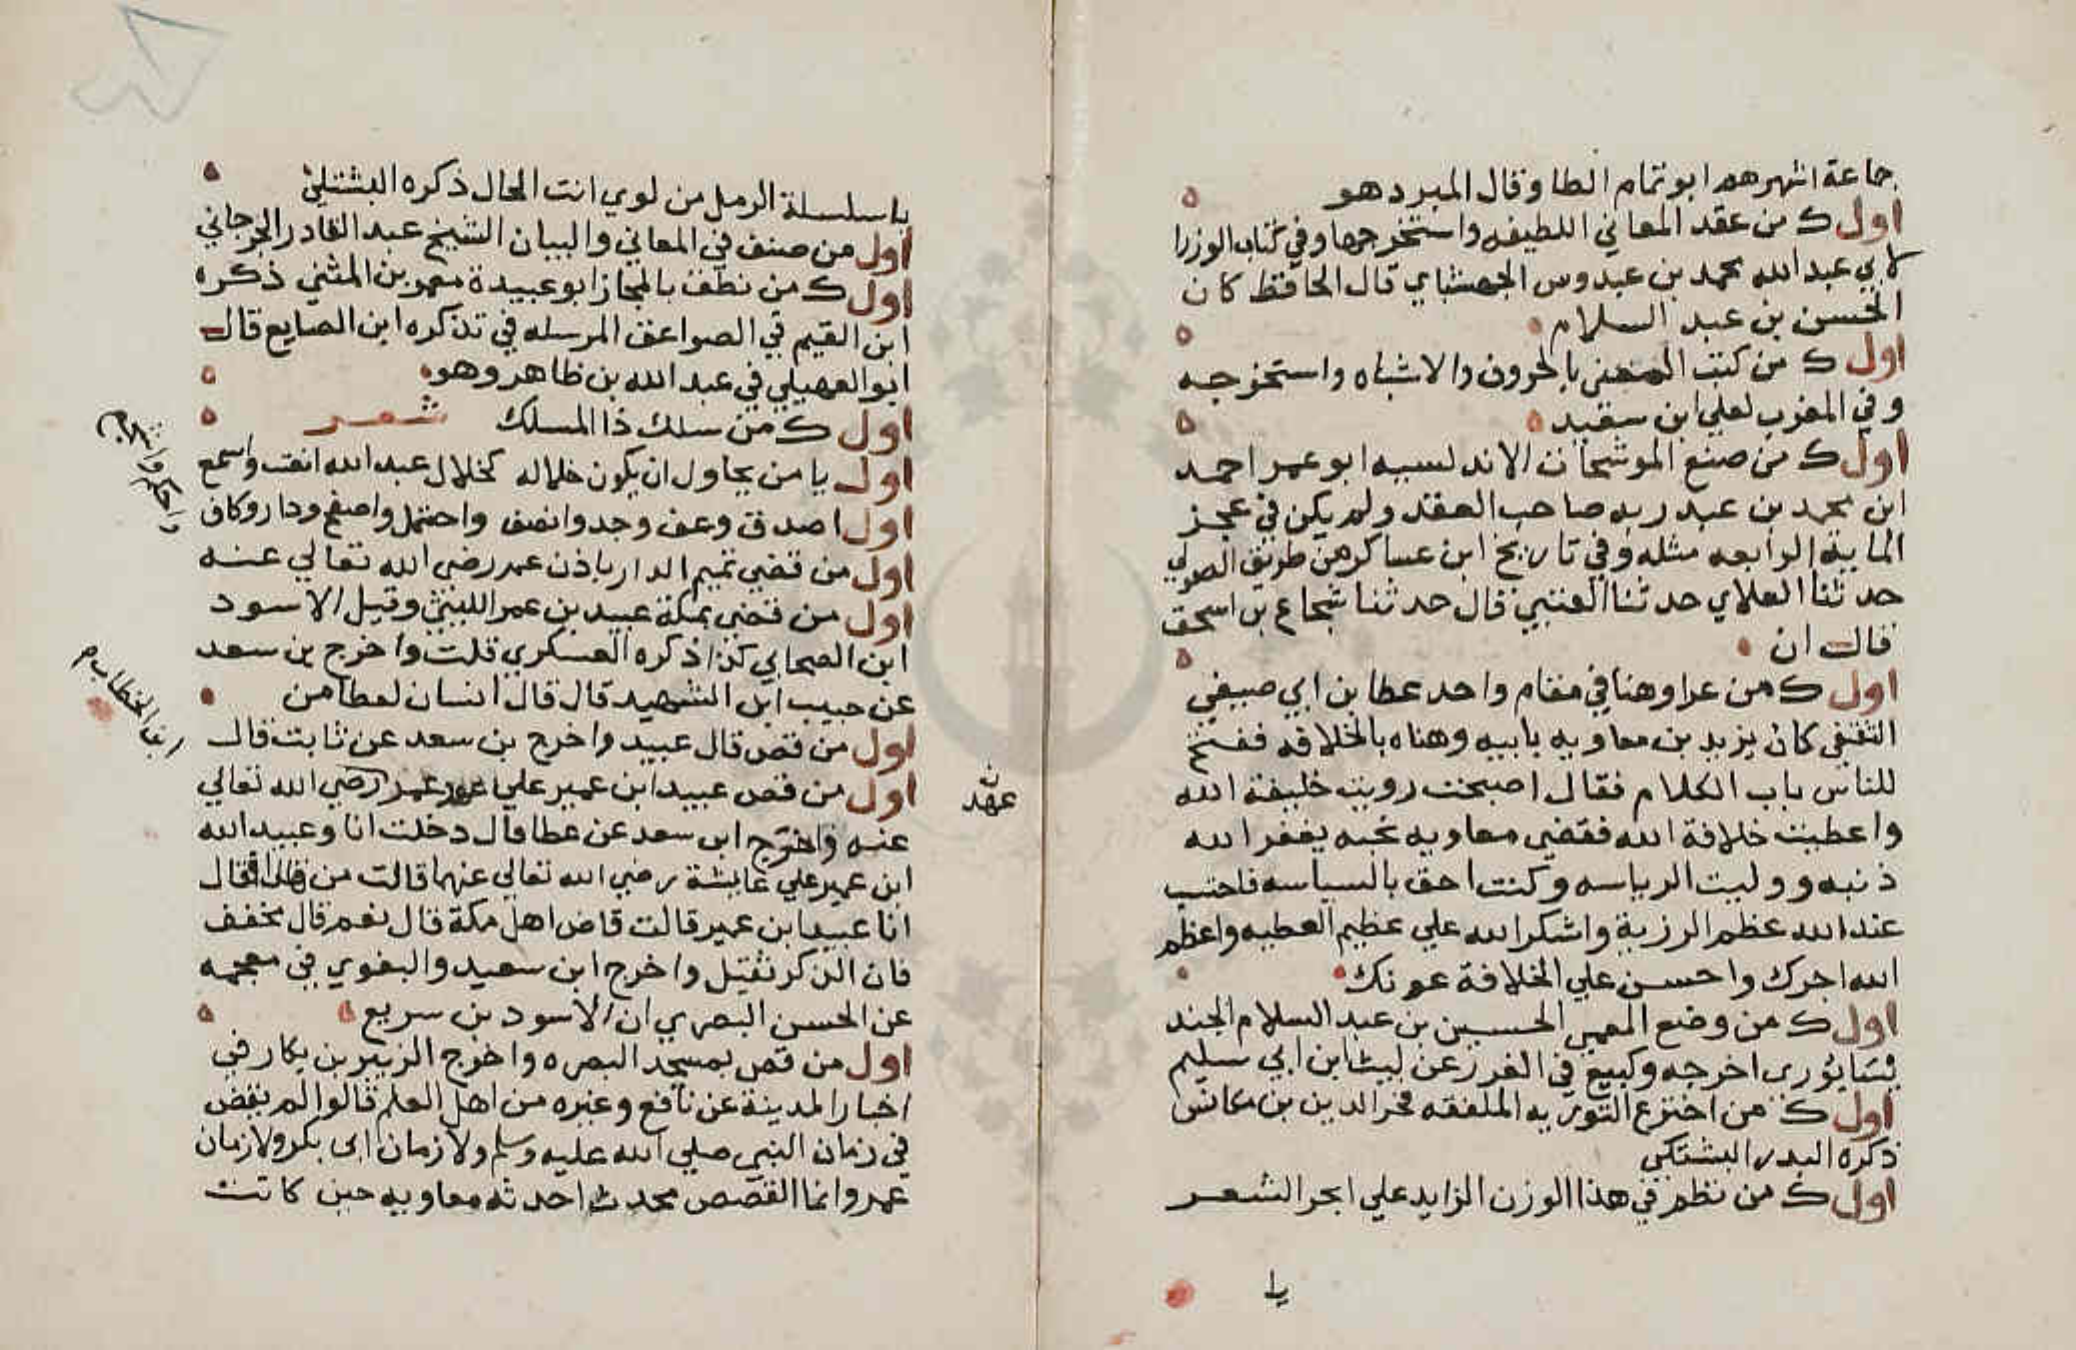 جماعة اشهرهم ابو تمام الطا وقال المبرد هو
اول ك من عقد المعاني اللطيفه واستخرجها وفي كتاب الوزرا
لابي عبد الله محمد بن عبدوس الجهشياي قال الحافظ كان
الحسن بن عبد السلام
اول ك من كتب المعني بالحروف والاشباه واستخرجه
وفي المغرب لعلي ابن سعيد
اول ك من صنع الموشحات الاندلسيه ابو عمر احمد
ابن محمد بن عبد ربه صاحب العقد ولم يكن في عجز
الماية الرابعه مثله وفي تاريخ ابن عساكر من طريق الصولي
حدثنا العلاي حدثنا العتبي قال حدثنا شجاع بن اسحق
قال ان
اول ك من عزا وهنا في مقام واحد عطا بن ابي صيفي
الثقفي كان يزيد بن معاويه بابيه وهناه بالخلافه ففتح
للناس باب الكلام فقال اصبحت رويت خليفة الله
واعطيت خلافة الله فقضي معاويه نحبه يغفر الله
ذنبه ووليت الرياسه وكنت احق بالسياسه فاحتسب
عند الله عظم الرزية واشكر الله علي عظيم العطيه واعظم
الله اجرك واحسن علي الخلافة عونك
اول ك من وضع المعمي الحسين بن عبد السلام الجند
يسابوري اخرجه وكيع في الغرر عن ليث ابن ابي سليم
اول ك من اخترع التوريه الملفقه فخر الدين بن مكانس
ذكره البدر البشتكي
اول ك من نظم في هذا الوزن الزايد علي ابحر الشعر
يا
ياسلسلة الرمل من لوي انت الحال ذكره البشتلي
اول من صنف في المعاني والبيان الشيخ عبد القادر الجرجاني
اول ك من نطف بالمجاز ابو عبيدة معمر بن المثني ذكره
ابن القيم في الصواعق المرسله في تذكره ابن الصايع قال
ابو العهيلي في عبد الله بن ظاهر وهو
اول ك من سلك ذا المسلك شعر
اول يا من يحاول ان يكون خلاله كخلال عبد الله انقت واسمع
اول اصدق وعف وجد وانصف واحتمل واصفح ودار وكاف
واحكم واشجع
اول من قضي تميم الدار باذن عمر رضي الله تعالي عنه
اول من قضي بمكة عبيد بن عمر الليثي وقيل الاسود
ابن الصحابي كذا ذكره العسكري قلت واخرج بن سعد
عن حبيب ابن الشهيد قال قال انسان لعطا من
اول من قص قال عبيد واخرج بن سعد عن ثابت قال
اول من قص عبيد ابن عمير علي عهد عمر رضي الله تعالي
عهد
ابن الخطاب
عنه واخرج ابن سعد عن عطا قال دخلت انا وعبيد الله
ابن عمير علي عايشة رضي الله تعالي عنها قالت من هذا فقال
انا عبيد ابن عمير قالت قاض اهل مكة قال نعم قال مخفف
فان الذكر ثقيل واخرج ابن سعيد والبغوي في معجمه
عن الحسن البصري ان الاسود بن سريع
اول من قص بمسجد البصره واخرج الزبير بن بكار في
اخبار المدينة عن نافع وغيره من اهل العلم قالوا لم يقض
في زمان النبي صلي الله عليه وسلم ولا زمان ابي بكر ولا زمان
عمر وانما القصص محدث احدثه معاويه حين كانت